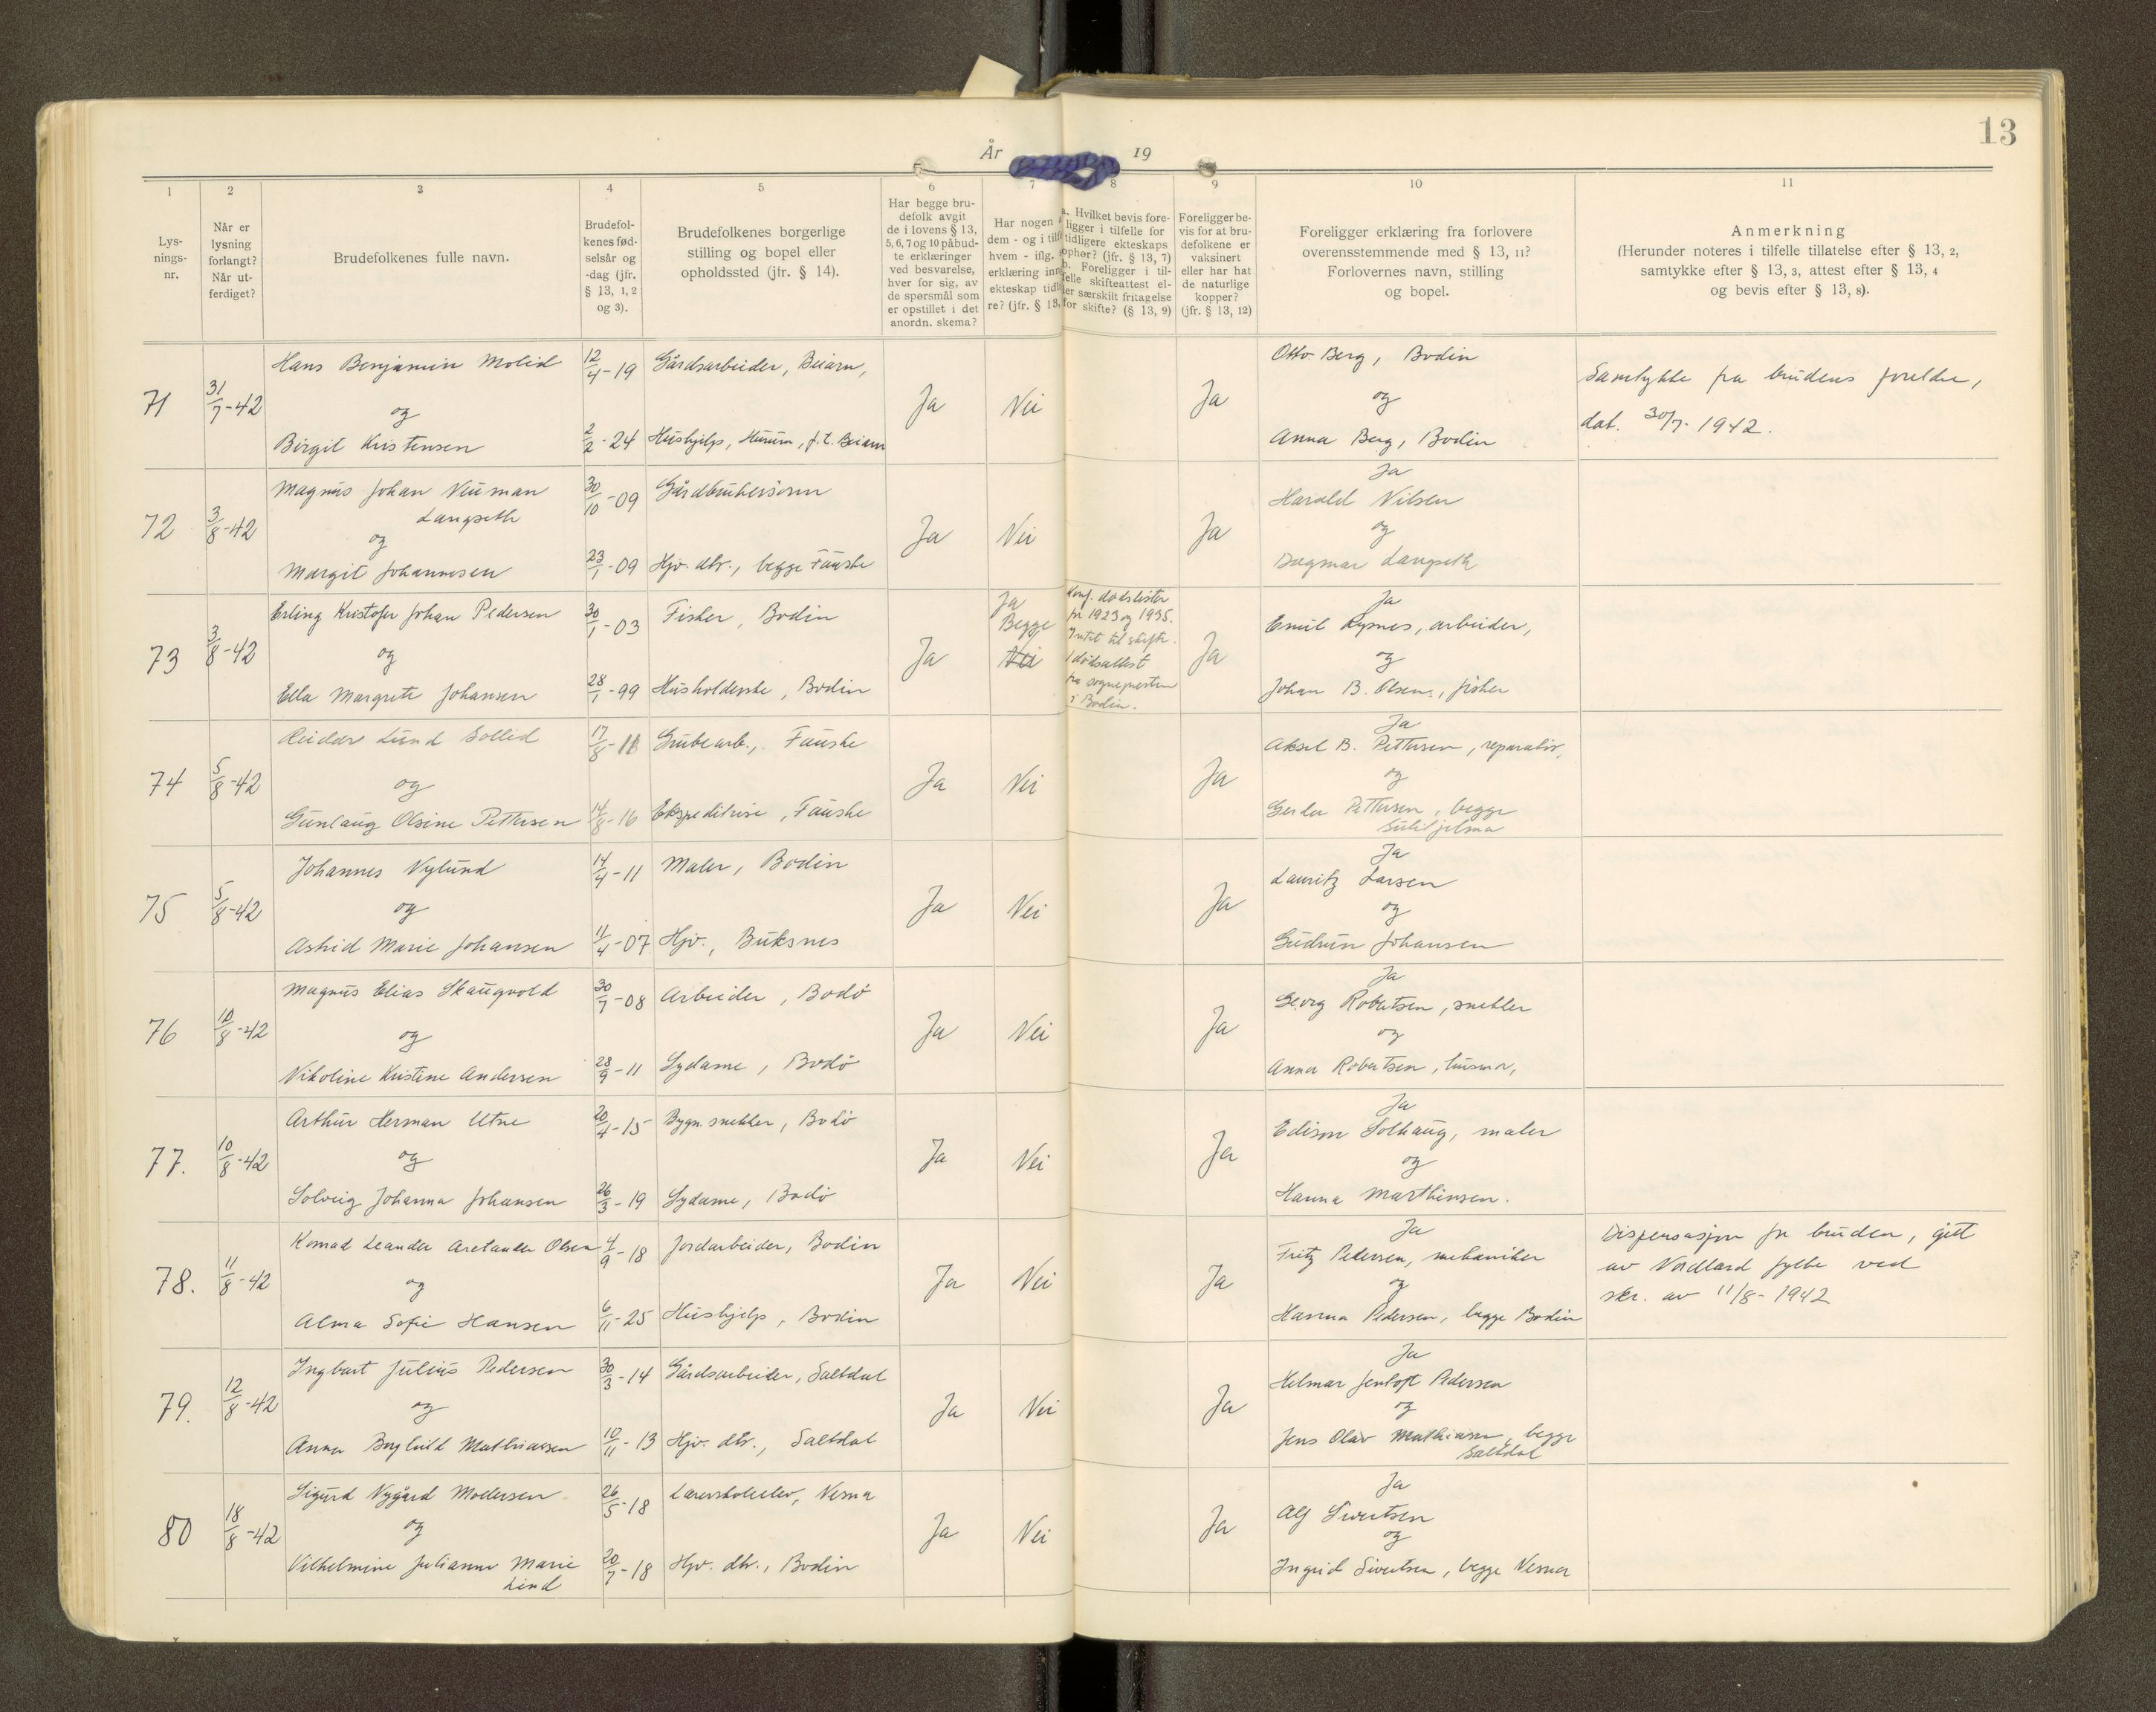 13
År 19
1
2
3
4
5
6
7
8
9
10
11
Lys-
nings-
nr.
Når er
lysning
forlangt?
Når ut-
ferdiget?
Brudefolkenes fulle navn.
Brudefol-
kenes fød-
selsår og
-dag (jfr.
§ 13, 1, 2
og 3).
Brudefolkenes borgerlige
stilling og bopel eller
opholdssted (jfr. § 14).
Har begge bru-
defolk avgit
de i lovens § 13,
5, 6, 7 og 10 påbud-
te erklæringer
ved besvarelse,
hver for sig, av
de spørsmål som
er opstillet i det
anordn. skema?
Har nogen
dem - og i tilf
hvem - iflg.
erklæring inn
ekteskap tid
re? (jfr. § 13,
a. Hvilket bevis fore-
ligger i tilfelle for
tidligere ekteskaps
ophør? (jfr. § 13, 7)
b. Foreligger i til-
felle skifteattest el-
ler særskilt fritagelse
for skifte? (§ 13, 9)
Foreligger be-
vis for at bru-
defolkene er
vaksinert
eller har hat
de naturlige
kopper?
(jfr. § 13, 12)
Foreligger erklæring fra forlovere
overensstemmende med § 13, 11?
Forlovernes navn, stilling
og bopel.
Anmerkning
(Herunder noteres i tilfelle tillatelse efter § 13, 2,
samtykke efter § 13, 3, attest efter § 13, 4
og bevis efter § 13, 8).
71
31/7-42
Hans Benjamin Molid
og
Birgit Kristensen
12/4-19
2/2-24
Gårdsarbeider, Beiarn,
Hushjelp, Hurum, f.t. Beiarn
Ja
Nei
Ja
Otto Berg, Bodin
og
Anna Berg, Bodin
Samtykke fra brudens foreldre,
dat. 30/7-1942.
72
3/8-42
Magnus Johan Neuman
Langseth
og
Margit Johannesen
30/10-09
23/1-09
Gårdbrukersønn
Hjv. dtr., begge Fauske
Ja
Nei
Ja
Ja
Harald Nilsen
og
Dagmar Langseth
73
3/8-42
Erling Kristofer Johan Pedersen
og
Ella Margrete Johansen
30/1-03
28/1-99
Fisker, Bodin
Husholderske, Bodin
Ja
Ja
Begge
Nei
Konf. dødslister
for 1923 og 1935.
Intet til skifte.
1 dødsattest
fra sognepresten
i Bodin.
Ja
Ja
Emil Rysnes, arbeider,
og
Johan B. Olsen, fisker
74
5/8-42
Reidar Lund Sollid
og
Gunlaug Olsine Pettersen
17/8-11
14/8-16
Grubearb., Fauske
Ekspeditrise, Fauske
Ja
Nei
Ja
Ja
Aksel B. Pettersen, reparatør,
og
Gerda Pettersen, begge
Sulitjelma
75
5/8-42
Johannes Nylund
og
Astrid Marie Johansen
14/4-11
11/4-07
Maler, Bodin
Hjv., Buksnes
Ja
Nei
Ja
Ja
Lauritz Larsen
og
Gudrun Johansen
76
10/8-42
Magnus Elias Skaugvold
og
Nikoline Kristine Andersen
30/7-08
28/9-11
Arbeider, Bodø
Sydame, Bodø
Ja
Nei
Ja
Ja
Georg Robertsen, snekker
og
Anna Robertsen, husmor,
77.
10/8-42
Arthur Herman Utne
og
Solveig Johanna Johansen
20/4-15
26/3-19
Bygn. snekker, Bodø
Sydame, Bodø
Ja
Nei
Ja
Ja
Edison Solhaug, maler
og
Hanna Marthinsen.
78.
11/8-42
Konrad Leander Aretander Olsen
og
Alma Sofie Hansen
4/9-18
6/11-25
Jordarbeider, Bodin
Hushjelp, Bodin
Ja
Nei
Ja
Ja
Fritz Pedersen, mekaniker
og
Hanna Pedersen, begge Bodin
Dispensasjon for bruden, gitt
av Nordland fylke ved
skr. av 11/8-1942
79.
12/8-42
Ingbart Julius Pedersen
og
Anna Borghild Mathiassen
30/3-14
10/11-13
Gårdsarbeider, Saltdal
Hjv. dtr., Saltdal
Ja
Nei
Ja
Ja
Helmar Jentoft Pedersen
og
Jens Olav Mathiassen, begge
Saltdal
80
18/8-42
Sigurd Nygård Mollersen
og
Vilhelmine Julianne Marie
Lind
26/5-18
20/7-18
Lærerskoleelev, Nesna
Hjv. dtr., Bodin
Ja
Nei
Ja
Ja
Alf Sivertsen
og
Ingrid Sivertsen, begge Nesna